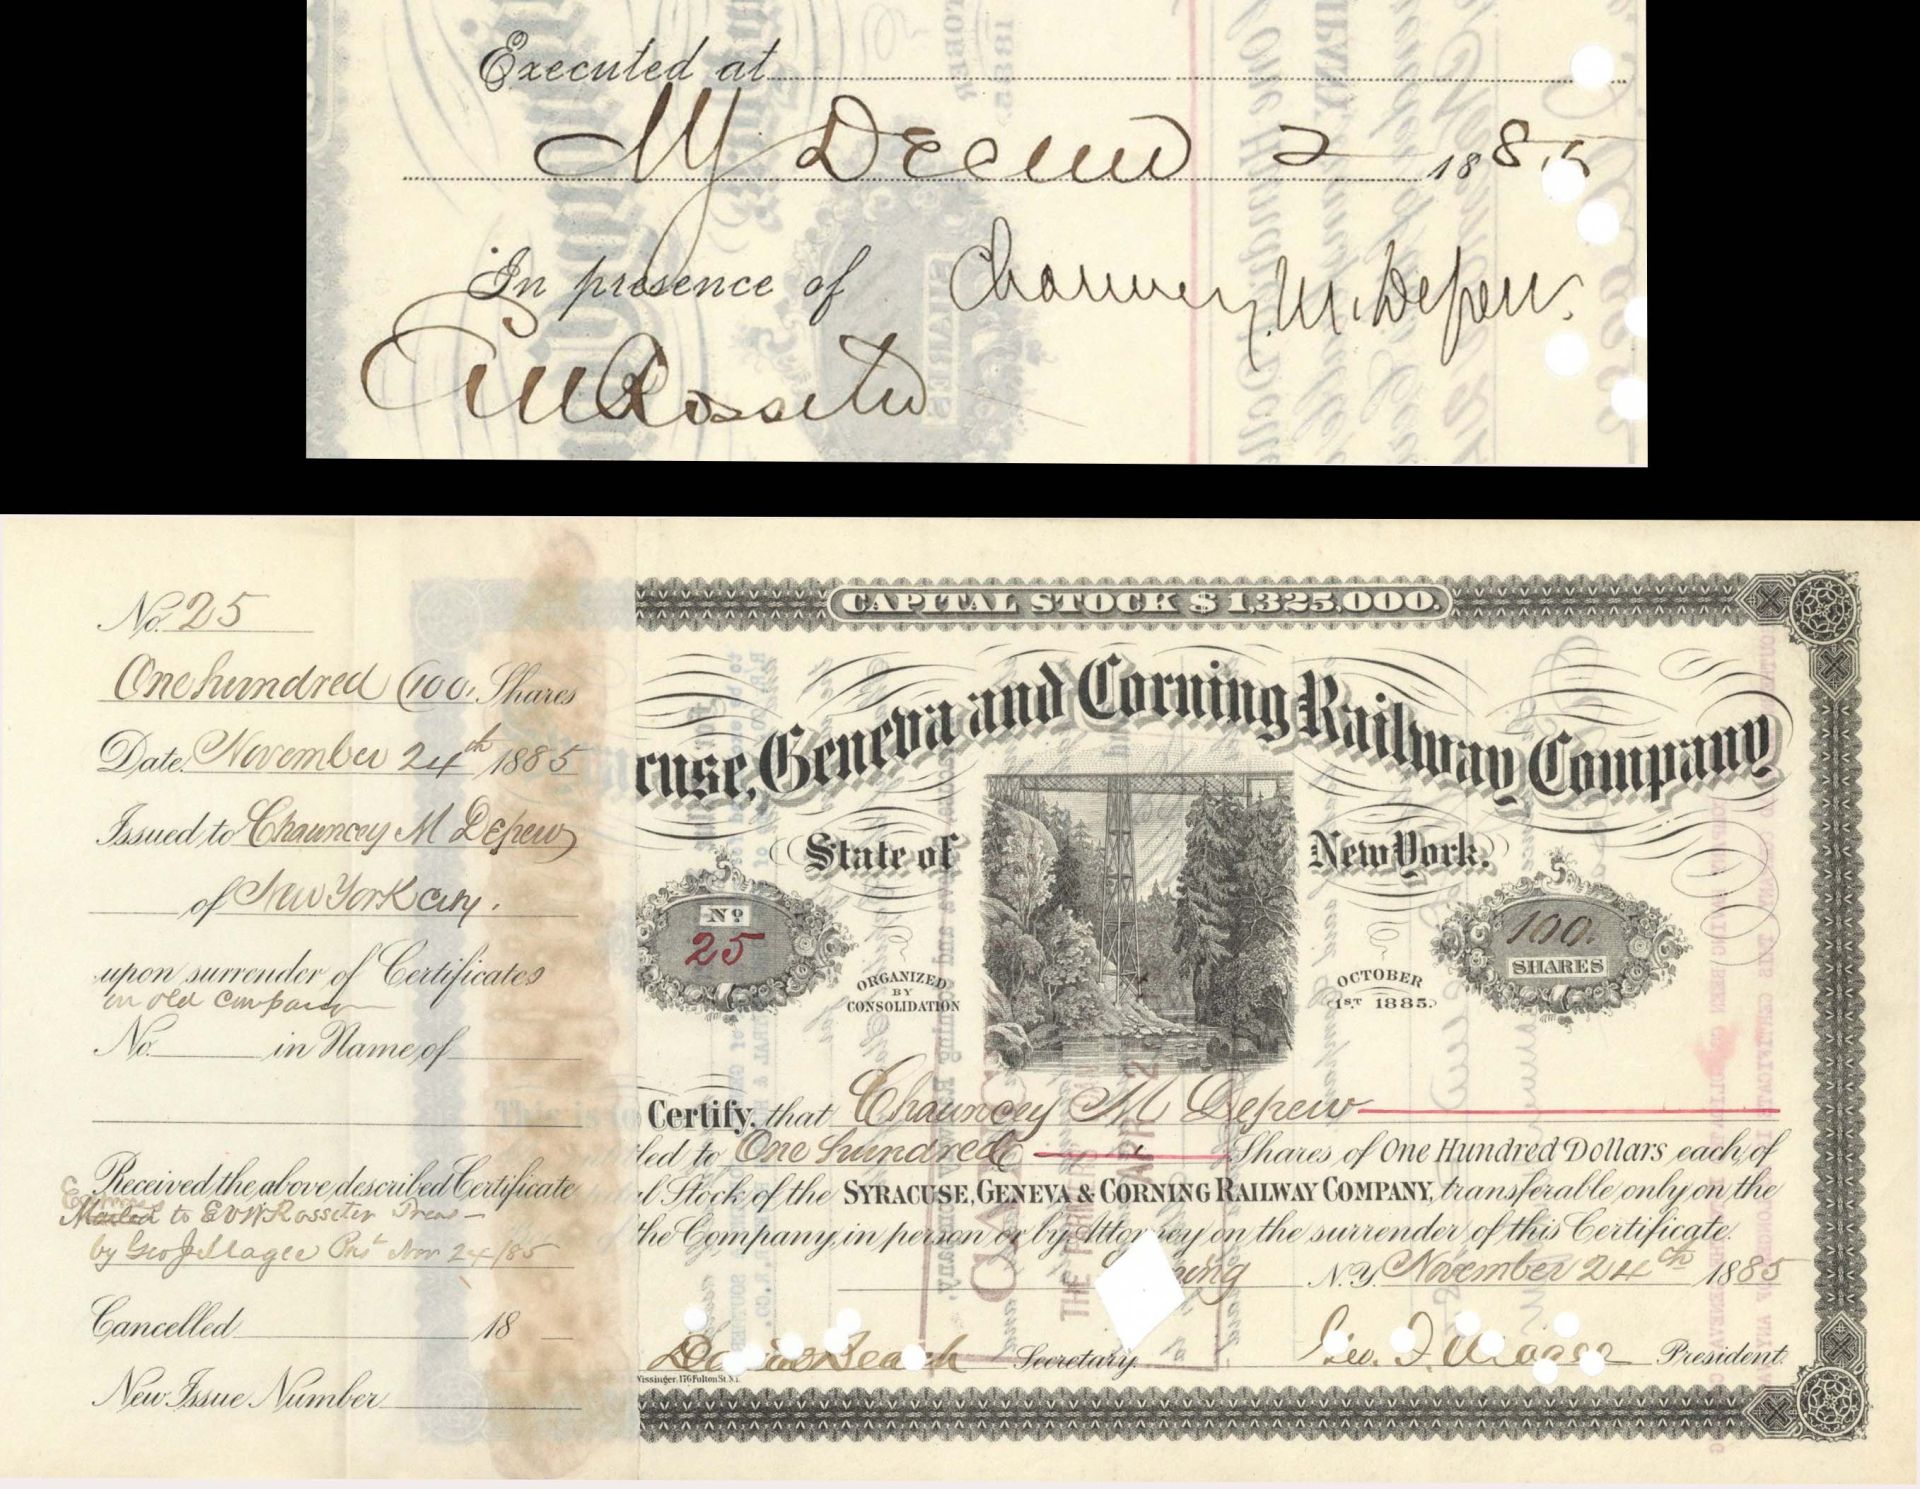 Executed at
NY Decem 2 1885
In presence of Chauncey M. Depew.
EVW Rossiter
No. 25
One hundred (100) Shares
Date November 24th 1885
Issued to Chauncey M Depew
of New York City.
upon surrender of Certificates
in old Company
No. in Name of
Received the above described Certificate
Mailed to EVW Rossiter Treas
by Geo J Magee Prst Nov 24/85
Cancelled 18
New Issue Number
CAPITAL STOCK $1,325,000.
cuse, Geneva and Corning Railway Company
State of New York.
No 25
ORGANIZED BY CONSOLIDATION
OCTOBER 1ST 1885.
100. SHARES
This is to Certify, that Chauncey M Depew
tled to One hundred Shares of One Hundred Dollars each, of
l Stock of the SYRACUSE, GENEVA & CORNING RAILWAY COMPANY, transferable only on the
the Company, in person or by Attorney on the surrender of this Certificate.
ning N.Y. November 24th 1885
Beach Secretary.
Geo. J. Magee President.
Wissinger, 176 Fulton St. N.Y.